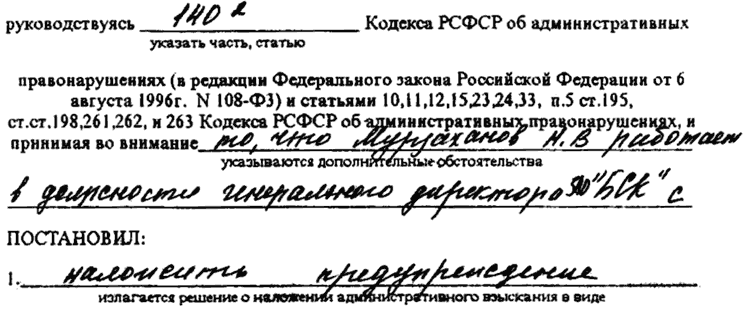 руководствуясь 140² Кодекса РСФСР об административных
указать часть, статью
правонарушениях (в редакции Федерального закона Российской Федерации от 6
августа 1996г. N 108-ФЗ) и статьями 10,11,12,15,23,24,33, п.5 ст.195,
ст.ст.198,261,262, и 263 Кодекса РСФСР об административных правонарушениях, и
принимая во внимание то, что Мурзаханов Н.В работает
указываются дополнительные обстоятельства
в должности генерального директора "БСК" с
ПОСТАНОВИЛ:
1. наложить предупреждение
излагается решение о наложении административного взыскания в виде